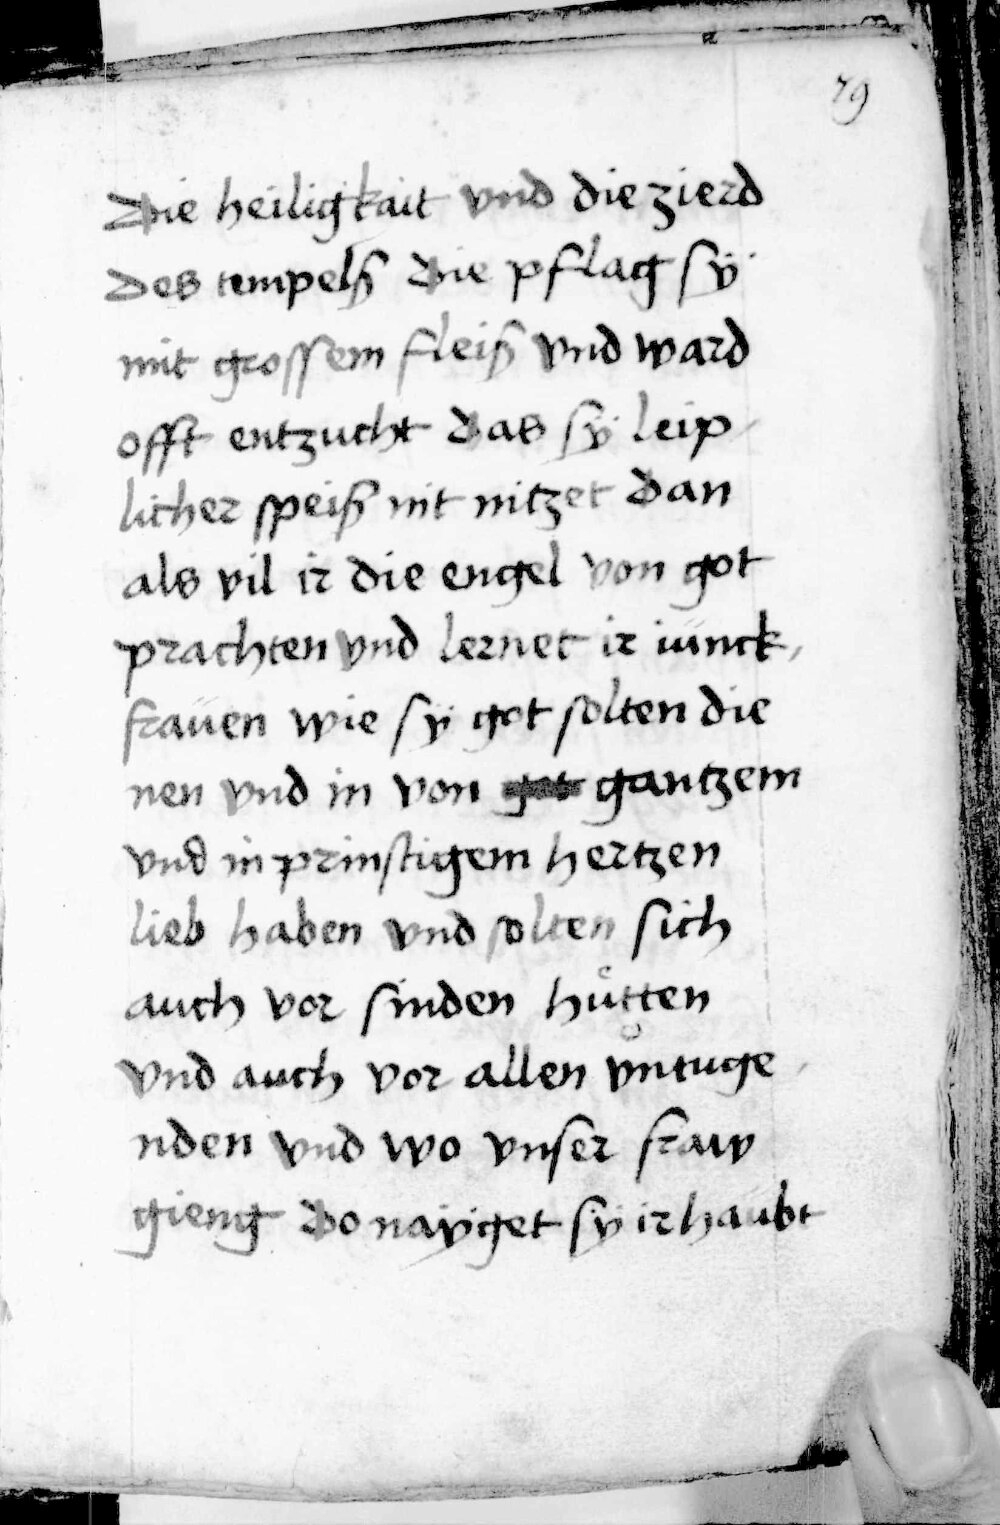 79
Die heiligkait vnd die zierd
des tempelß die pflag sÿ
mit grossem fleiß vnd ward
offt entzucht das sÿ leip
licher speiß nit nitzet dan
als vil ir die engel von got
prachten vnd lernet ir iünck,
fraüen wie sÿ got solten die
nen vnd in von gantzem
vnd in prinstigem hertzen
lieb haben vnd solten sich
auch vor sinden huͤtten
vnd auch vor allen vntuge
nden vnd wo vnser fraw
gieng do naÿget sÿ ir haübt